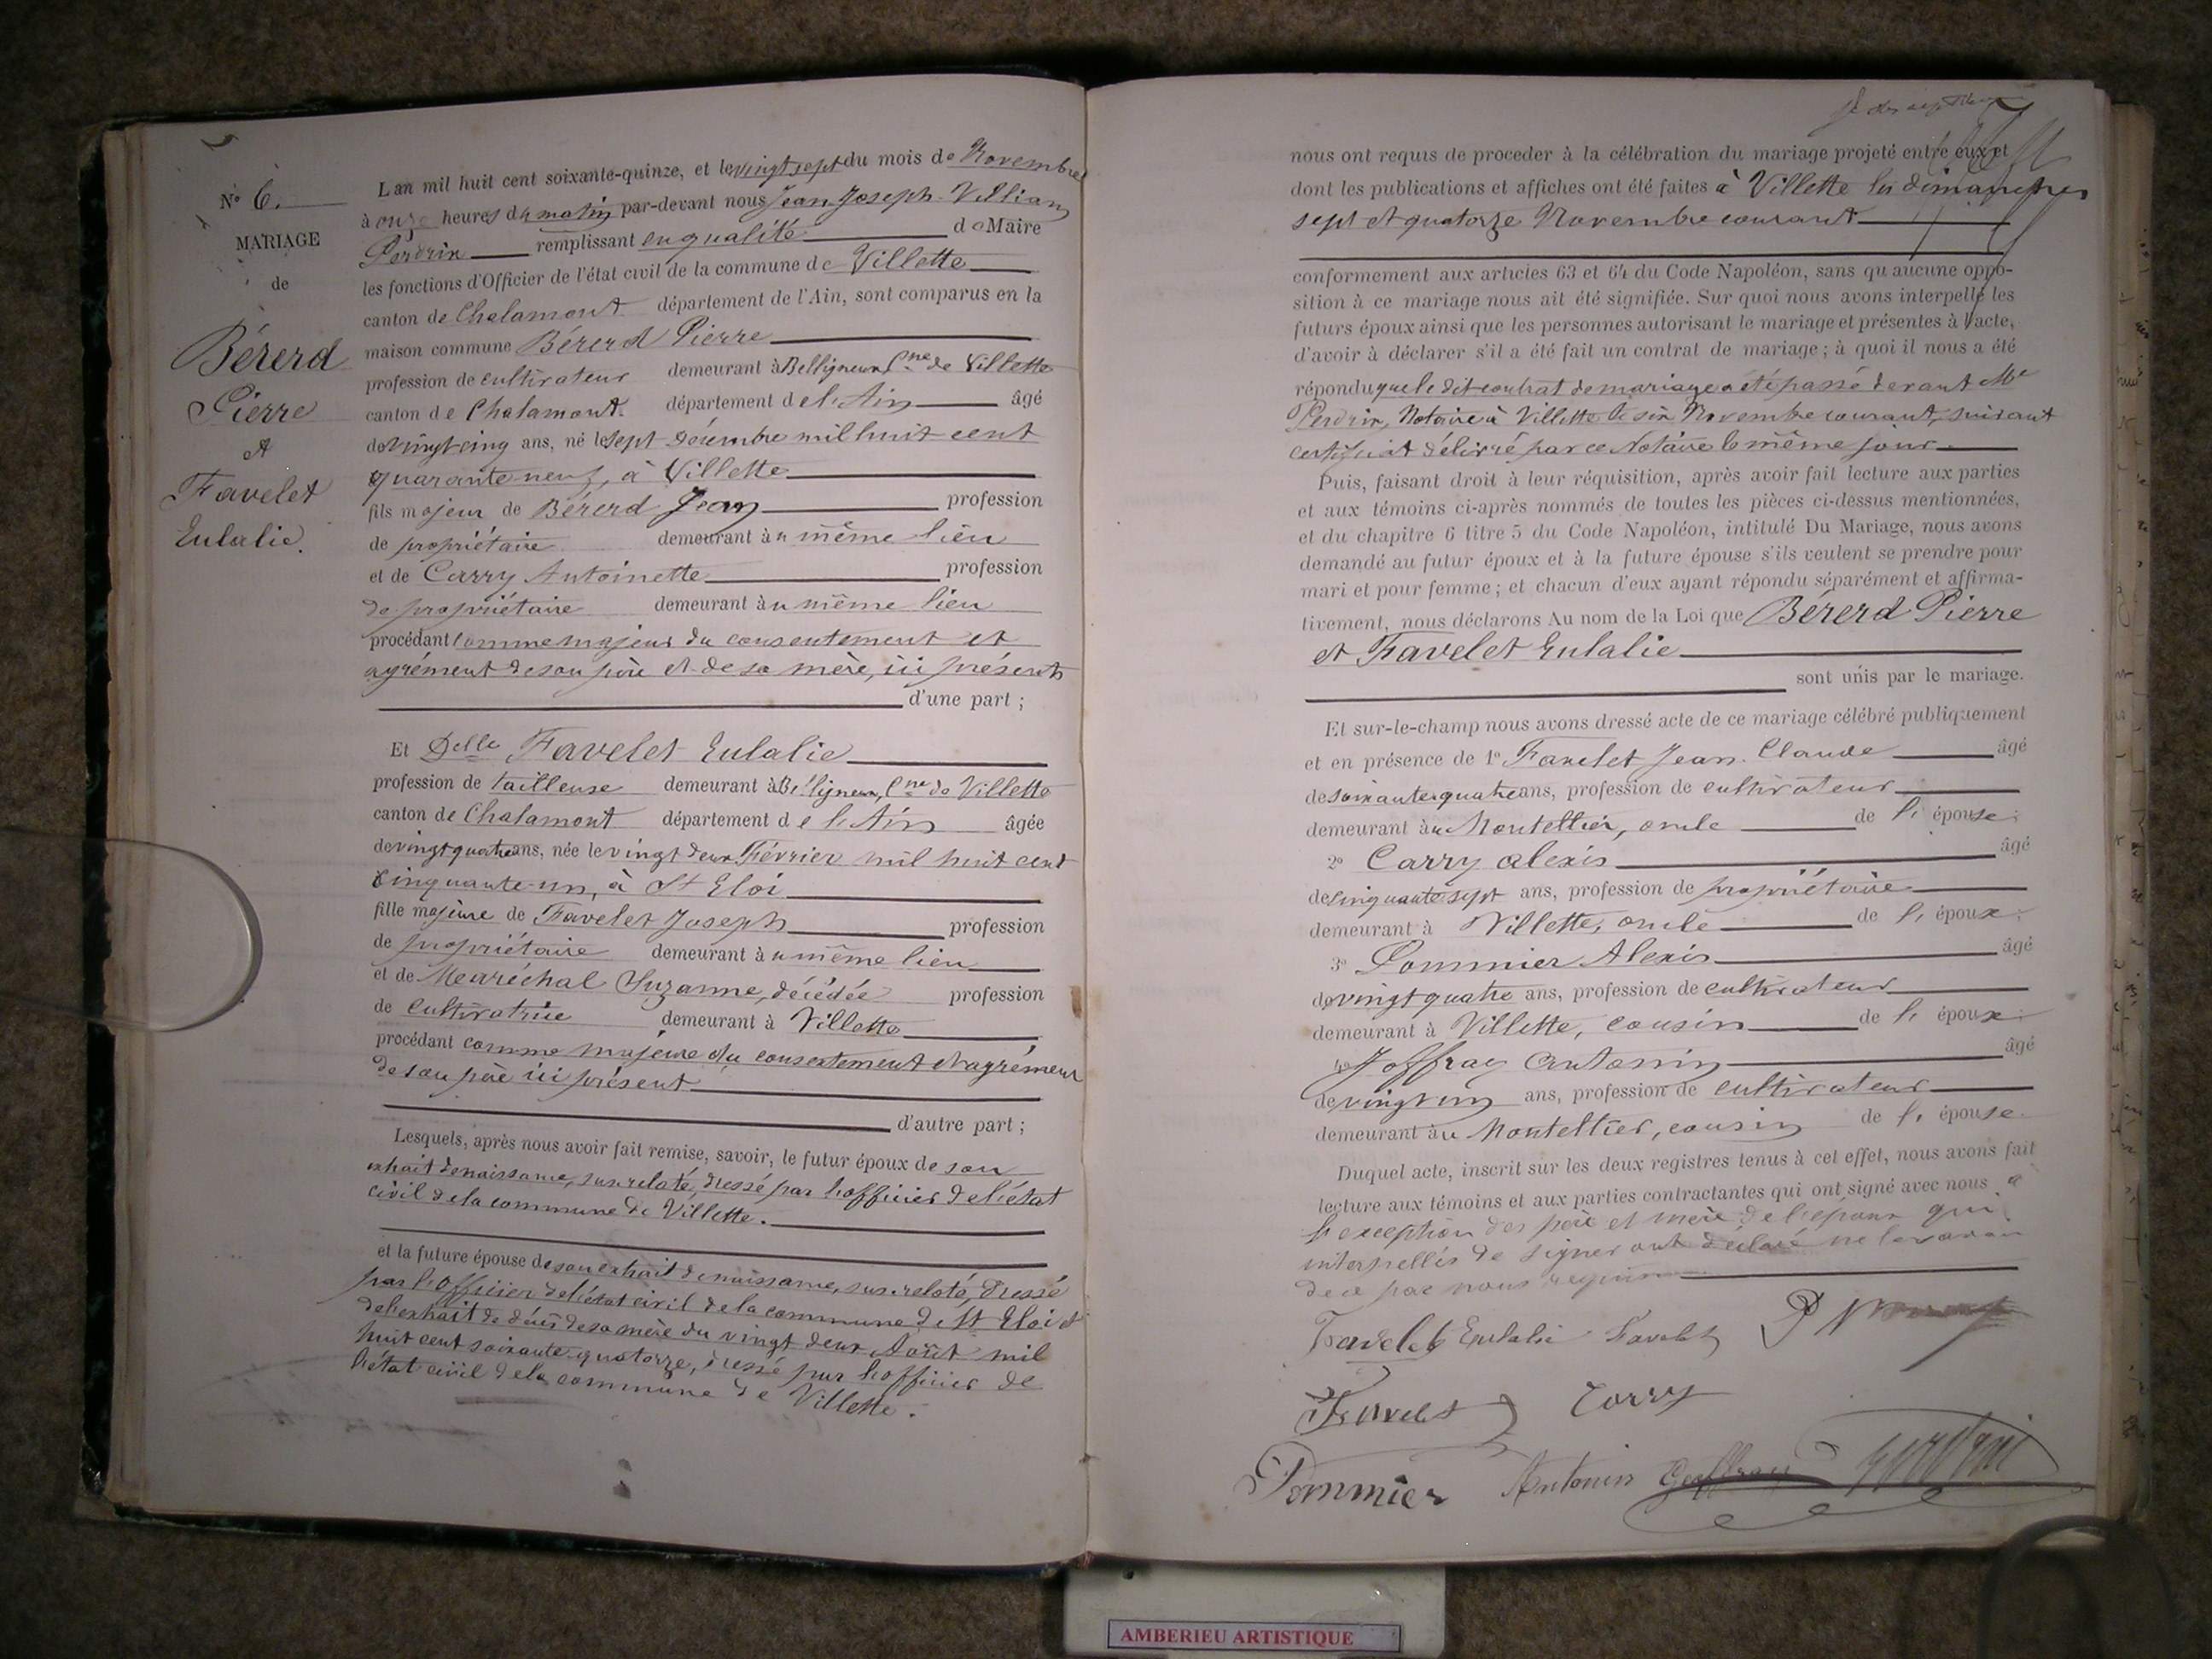 N° 6.
MARIAGE
de
Bérerd
Pierre
et
Favelet
Eulalie.
L'an mil huit cent soixante-quinze, et le vingt sept du mois de Novembre
à onze heures du matin par-devant nous Jean Joseph
Perdrix remplissant en qualité de Maire
les fonctions d'Officier de l'état civil de la commune de Villette
canton de Chalamont département de l'Ain, sont comparus en la
maison commune Bérerd Pierre
profession de cultivateur demeurant à Belligneux Cne de Villette
canton de Chalamont département de l'Ain âgé
de vingt cinq ans, né le sept Décembre mil huit cent
quarante neuf, à Villette
fils majeur de Bérerd Jean profession
de propriétaire demeurant au même lieu
et de Carry Antoinette profession
de propriétaire demeurant au même lieu
procédant comme majeur du consentement et
agrément de son père et de sa mère, ici présents
d'une part ;
Et Delle Favelet Eulalie
profession de tailleuse demeurant à Béligneux, Cne de Villette
canton de Chalamont département de l'Ain âgée
de vingt quatre ans, née le vingt deux Février mil huit cent
cinquante-un, à St Eloi
fille majeure de Favelet Joseph profession
de propriétaire demeurant au même lieu
et de Maréchal Suzanne, décédée profession
de cultivatrice demeurant à Villette
procédant comme majeure du consentement et agrément
de son père ici présent
d'autre part ;
Lesquels, après nous avoir fait remise, savoir, le futur époux de son
extrait de naissance, sus-relaté, dressé par l'officier de l'état
civil de la commune de Villette.
et la future épouse de son extrait de naissance, sus-relaté, dressé
par l'officier de l'état civil de la commune de St Eloi et
de l'extrait de décès de sa mère du vingt deux Août mil
huit cent soixante-quatorze, dressé par l'officier de
l'état civil de la commune de Villette.
nous ont requis de proceder à la célébration du mariage projeté entre eux et
dont les publications et affiches ont été faites à Villette les dimanches
sept et quatorze Novembre courant
conformement aux articles 63 et 64 du Code Napoléon, sans qu'aucune oppo-
sition à ce mariage nous ait été signifiée. Sur quoi nous avons interpellé les
futurs époux ainsi que les personnes autorisant le mariage et présentes à l'acte,
d'avoir à déclarer s'il a été fait un contrat de mariage ; à quoi il nous a été
répondu que le dit contrat de mariage a été passé devant Me
Perdrix, Notaire à Villette le six Novembre courant, suivant
certificat délivré par ce Notaire le même jour
Puis, faisant droit à leur réquisition, après avoir fait lecture aux parties
et aux témoins ci-après nommés de toutes les pièces ci-dessus mentionnées,
et du chapitre 6 titre 5 du Code Napoléon, intitulé Du Mariage, nous avons
demandé au futur époux et à la future épouse s'ils veulent se prendre pour
mari et pour femme ; et chacun d'eux ayant répondu séparément et affirma-
tivement, nous déclarons Au nom de la Loi que Bérerd Pierre
et Favelet Eulalie
sont unis par le mariage.
Et sur-le-champ nous avons dressé acte de ce mariage célébré publiquement
et en présence de 1° Favelet Jean-Claude âgé
de soixante quatre ans, profession de cultivateur
demeurant au Montellier, oncle de l'épouse ;
2° Carry alexis âgé
de cinquante sept ans, profession de propriétaire
demeurant à Villette, oncle de l'époux ;
3° Pommier Alexis âgé
de vingt quatre ans, profession de cultivateur
demeurant à Villette, cousin de l'époux ;
4° Joffray Antonin âgé
de vingt un ans, profession de cultivateur
demeurant au Montellier, cousin de l'épouse
Duquel acte, inscrit sur les deux registres tenus à cet effet, nous avons fait
lecture aux témoins et aux parties contractantes qui ont signé avec nous à
l'exception des père et mère de l'époux qui
interpellés de signer ont déclaré ne le savoir
de ce par nous requis
Favelet Eulalie Favelet
Favelet Carry
Pommier Antonin Geoffray Perdrix
AMBERIEU ARTISTIQUE